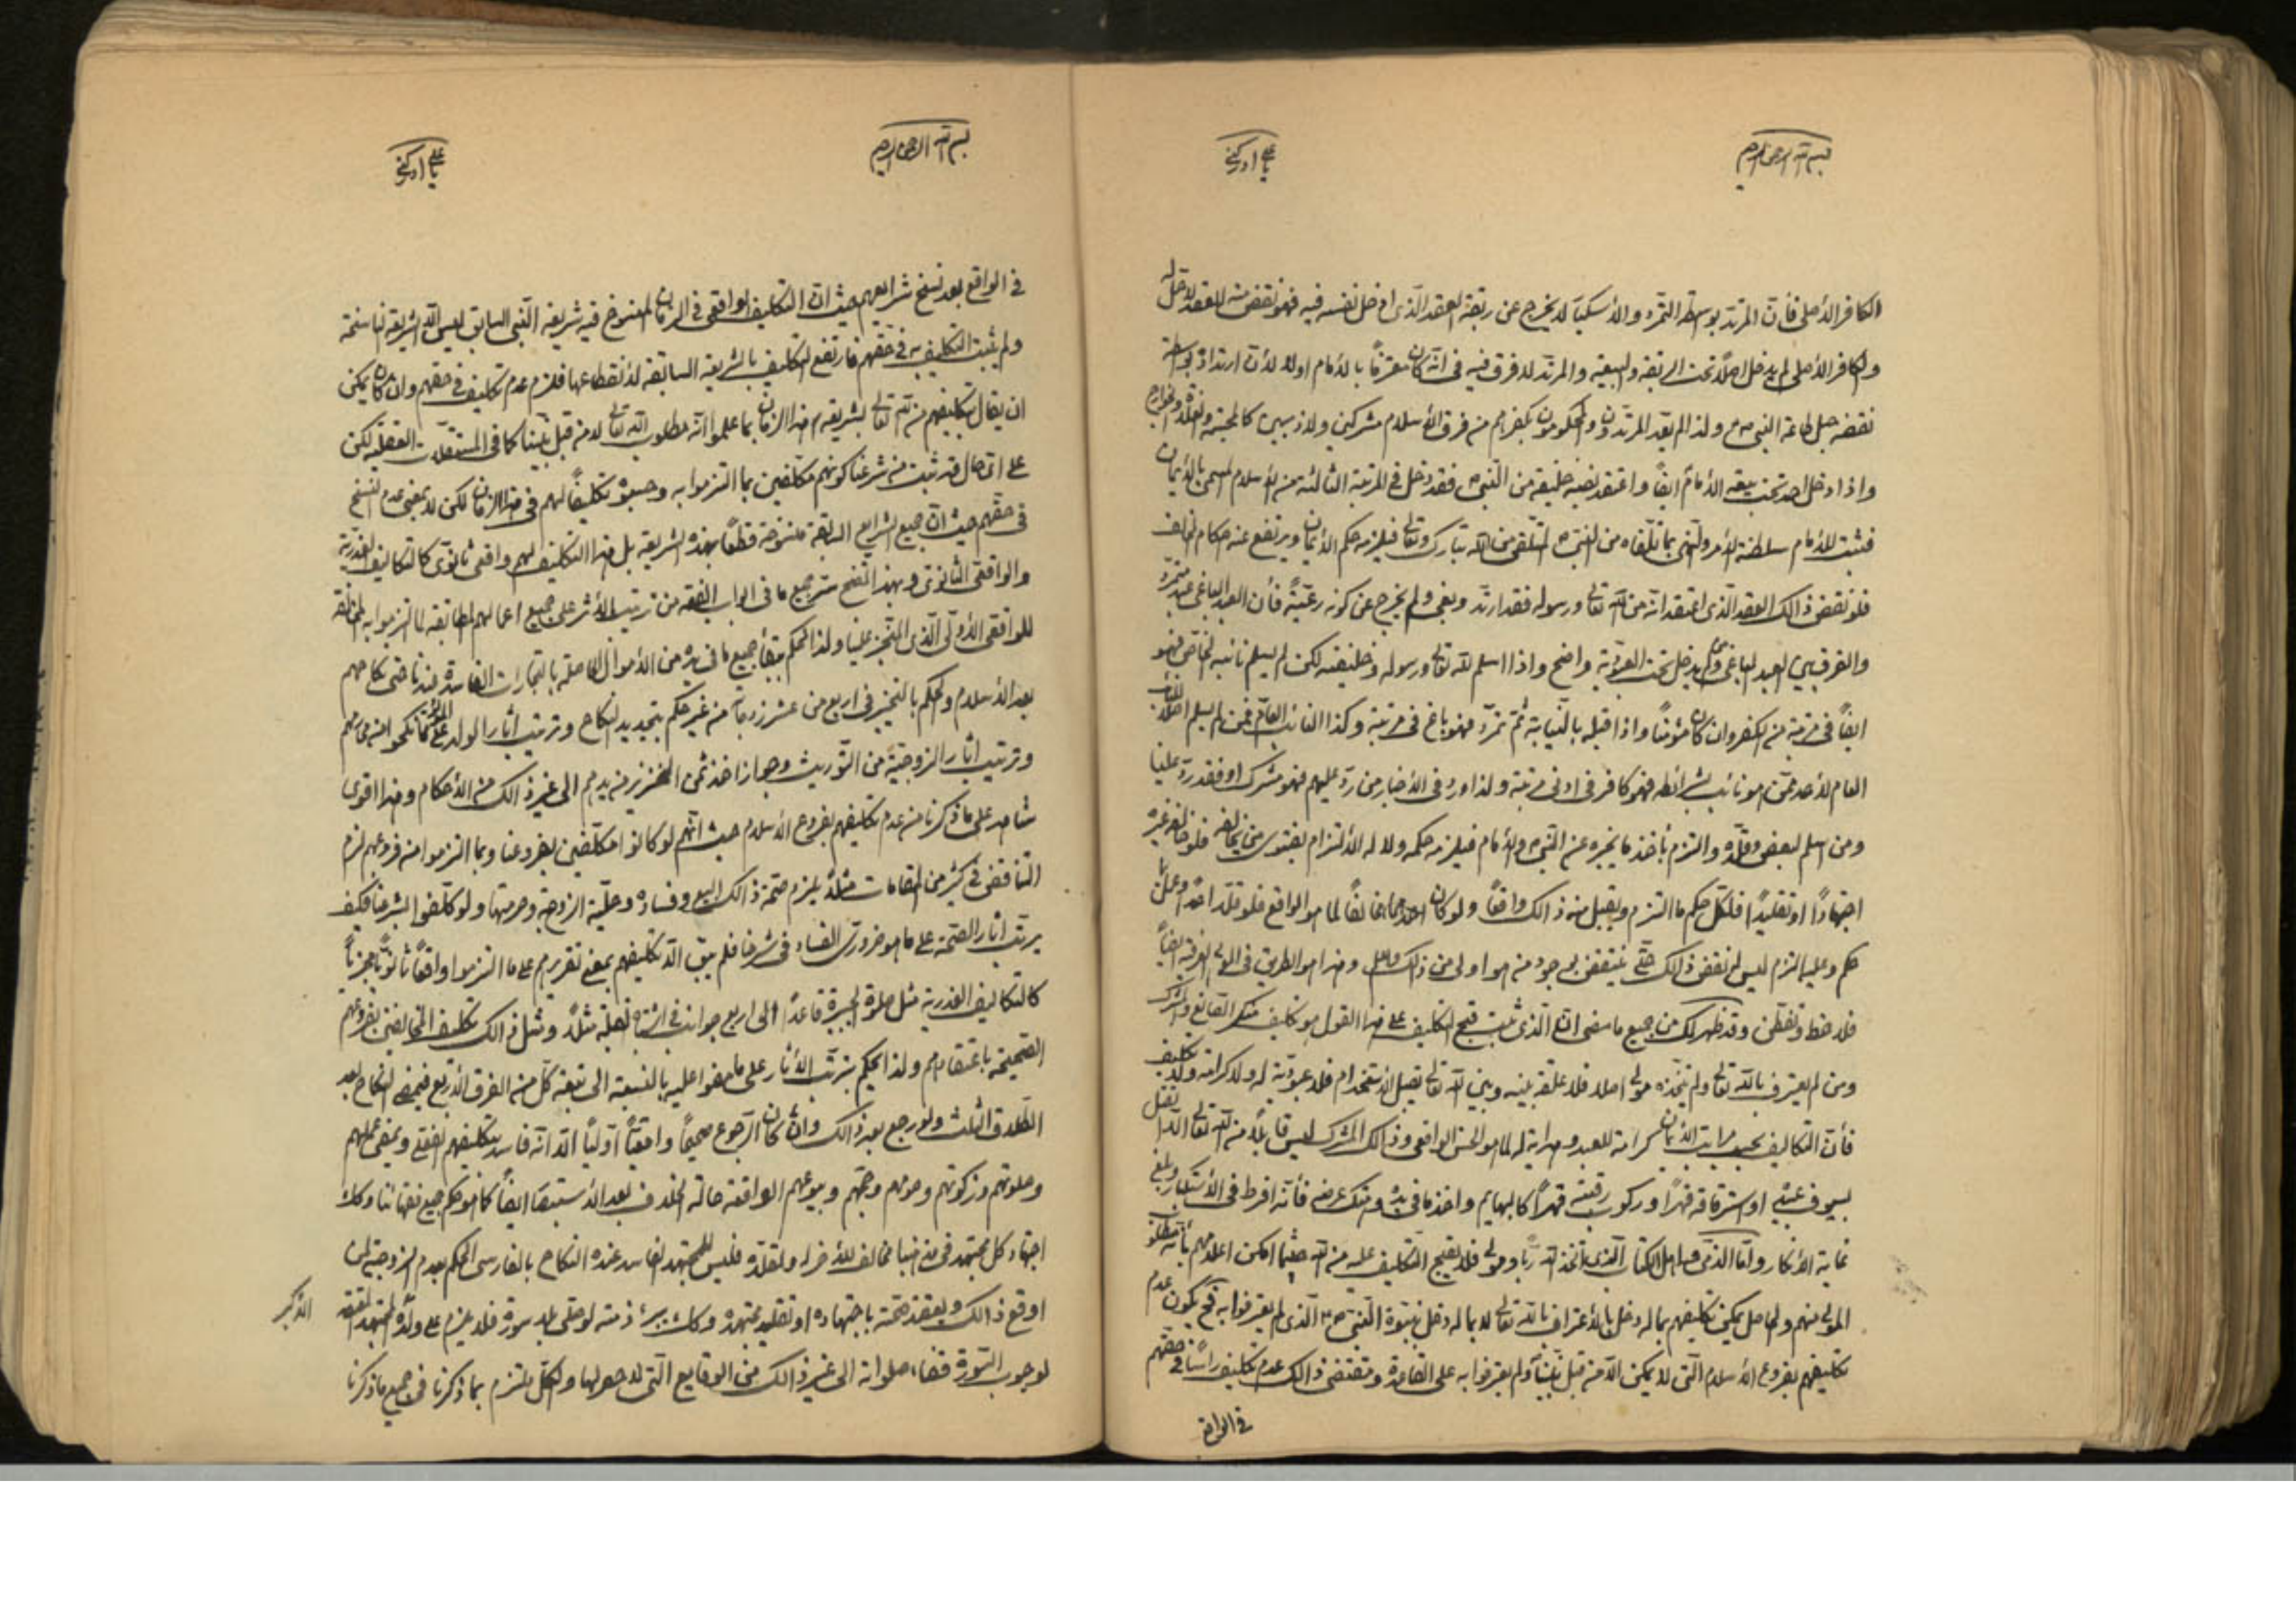 بسم الله الرحمن الرحيم
يا علي ادركني
الكافر الأصلي فأن المرتد بواسطة التمرد والأستكبار لا يخرج عن ربقة العقد الذي ادخل نفسه فيه فهو نقض منه للعقد لا حل له
والكافر الأصلي لم يدخل اصلاً تحت الربقة والبيعة والمرتد لا فرق فيه في انه كان معترفاً بالأمام اولا لأن ارتداده بواسطة
نقضه حبل طاعة النبي ص ولذا لم يعد المرتدون والمحكومون بكفرهم من فرق الأسلام مشركين ولا ذميين كالمجسمة والغلاة والخوارج
واذا دخل احد تحت بيعة الأمام ايضاً واعتقد نصبه خليفة من النبي ص فقد دخل في المرتبة الثالثة من الأسلام المسمى بالأيمان
فثبت للأمام سلطنة الأمر والنهي بما تلقاه من النبي ص المتلقى من الله تبارك وتعالى فيلزمه حكم الأيمان ويرتفع عنه احكام المخالف
فلو نقض ذالك العقد الذي اعتقد انه من الله تعالى ورسوله فقد ارتد وبغى ولم يخرج عن كونه رعية فأن العبد الباغي عبد متمرد
والفرق بين العبد الباغي ومن لم يدخل تحت العبودية واضح واذا اسلم لله تعالى ورسوله وخليفته لكن لم يسلم نائبه الخاص فهو
ايضاً في مرتبة من الكفر وان كان مؤمناً واذا قبله بالنيابة ثم تمرد فهو باغ في مرتبته وكذا النائب العام فمن لم يسلم اصلاً النائب
العام لأحد ممن هو نائب بشرائطه فهو كافر في ادنى مرتبة ولذا ورد في الأخبار من رد عليهم فهو مشرك او فقد رد علينا
ومن اسلم لبعض وقلده والتزم بأخذ ما يخبره عن النبي ص والأمام فيلزمه حكمه ولا له الألتزام بفتوى من يخالفه فلو خالفه غيره
اجتهاداً او تقليداً فلكل حكم ما التزم ويقبل منه ذالك واقعاً ولو كان احدهما مخالفاً لما هو الواقع فلو قلد احداً وعمل بما
حكم وعليه التزم ليس له نقض ذالك حتى ينتقض بوجود من هو اولى من ذالك واعلم وهذا هو الطريق في
فلاحظ وتفطن وقد ظهر لك من جميع ما مضى ان الذي ثبت قبح التكليف على هذا القول هو تكليف منكر الصانع والمشرك
ومن لم يعترف بالله تعالى ولم يتخذه مولى اصلا فلا علقة بينه وبين الله تعالى تقبل الأستخدام فلا عبودية له ولا كرامة ولا تكليف
فأن التكاليف بحسب مراتب الأيمان كرامة للعبد وهداية له لما هو الحسن الواقعي وذالك المشرك ليس قابلاً من الله تعالى الا ان يقتل
بسيوف عبيده او استرقاقه قهراً وركوب رقبته قهراً كالبهايم واخذ ما في يده وهتك عرضه فأنه افرط في الأستكبار وبلغ
غاية الأنكار واما الذمي من اهل الكتاب الذي اتخذ الله رباً ومولى فلا يقبح التكليف عليه من الله حيثما امكن اعلامهم بأنه مطلوب
المولى منهم والحاصل يمكن تكليفهم بما له دخل بالأعتراف بالله تعالى لا بما له دخل بنبوة النبي ص الذي لم يعترفوا به فح يكون عدم
تكليفهم بفروع الأسلام التي لا يمكن الا من قبل نبينا ولم يعترفوا به على القاعدة ومقتضى ذالك عدم تكليف راساً في حقهم
في الواقع
بسم الله الرحمن الرحيم
يا علي ادركني
في الواقع بعد نسخ شرايعهم حيث ان التكليف الواقعي في الزمان المنسوخ فيه شريعة النبي السابق ليس الا الشريعة الناسخة
ولم يثبت التكليف به في حقهم فارتفع التكليف بالشريعة السابقة لأنقطاعها فلزم عدم تكليف في حقهم وان كان يمكن
ان يقال بتكليفهم من الله تعالى بشريعتهم هذا الزمان بما علموا انه مطلوب الله تعالى لا من قبل نبينا كما في المستقلات العقلية لكن
على اى حال قد ثبت من شرعنا كونهم مكلفين بما التزموا به وحسبوه تكليفاً لهم في هذا الزمان لكن لا بمعنى عدم النسخ
في حقهم حيث ان جميع الشرايع السابقة منسوخة قطعاً بهذه الشريعة بل هذا التكليف لهم واقعي ثانوي كالتكاليف العذرية
والواقعي الثانوي وبهذا اتضح سر جميع ما في ابواب الفقه من ترتيب الأثر على جميع اعمالهم المطابقة لما التزموا به المخالفة
للواقعي الأولي الذي المنجز علينا ولذا الحكم ببقاء جميع ما في يده من الأموال الحاصلة بالتجارات الفاسدة عندنا حتى نكاحهم
بعد الأسلام والحكم بالتخيير في اربع من عشر زوجات من غير حكم بتجديد النكاح وترتيب اثار الولد على
وترتيب اثار الزوجية من التوريث وجواز اخذ ثمن الخنزير من يدهم الى غير ذالك من الأحكام وهذا اقوى
شاهد على ما ذكرنا من عدم تكليفهم بفروع الأسلام حيث انهم لو كانوا مكلفين بفروعنا وبما التزموا من فروعهم لزم
التناقض في كثير من المقامات مثلاً يلزم صحة ذالك البيع وفساده وحلية الزوجة وحرمتها ولو كلفوا بشرعنا فكيف
يرتب اثار الصحة على ما هو ضروري الفساد في شرعنا فلم يبق الا تكليفهم بمعنى تقريرهم على ما التزموا واقعاً ثانوياً
كالتكاليف العذرية مثل صلوة الجبيرة قاعداً والى اربع جوانب في اشتباه القبلة مثلاً ومثل ذالك تكليف المخالفين بفروعهم
الصحيحة باعتقادهم ولذا يحكم بترتب الأثار على ما بنوا عليه بالنسبة الى تبعة كل من الفرق الأربع فيمضى النكاح بعد
الطلاق الثلث ولو رجع بعد ذالك وان كان الرجوع صحيحاً واقعياً اولياً الا انه فاسد بتكليفهم الفعلي ويمضى عملهم
وصلوتهم وزكوتهم وصومهم وحجهم وبيوعهم الواقعة حالة الخلاف بعد الأستبصار ايضاً كما هو حكم جميع فقهائنا وكذا
اجتهاد كل مجتهد في مذهبنا مخالف للأخر له ولمقلده فليس للمجتهد الفاسد عنده النكاح بالفارسي الحكم بعدم الزوجية لمن
اوقع ذالك ويعتقد صحته باجتهاده او تقليد مجتهده وكذا يبرئ ذمته لو صلى بلا سورة فلا يلزم على ولده المجتهد المعتقد
لوجوب السورة قضاء صلواته الى غير ذالك من الوقايع التي لا حصر لها والكل ملتزم بما ذكرنا في جميع ما ذكرنا
الأكبر